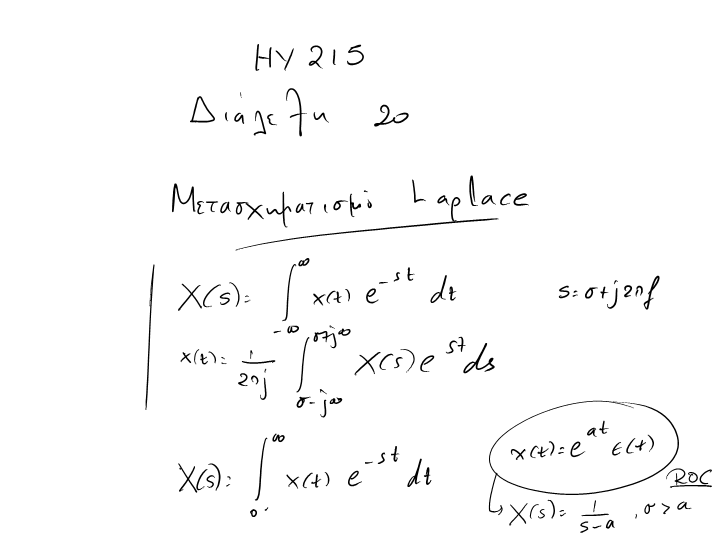 ΗΥ 215
Διάλεξη 20
Μετασχηματισμοί Laplace
X(s) = ∫_{-∞}^{∞} x(t) e^{-st} dt    s = σ + j2πf
x(t) = \frac{1}{2πj} ∫_{σ-j∞}^{σ+j∞} X(s) e^{st} ds
X(s) = ∫_{0^-}^{∞} x(t) e^{-st} dt
x(t) = e^{at} ε(t)
ROC
↳ X(s) = \frac{1}{s-a} , σ > a